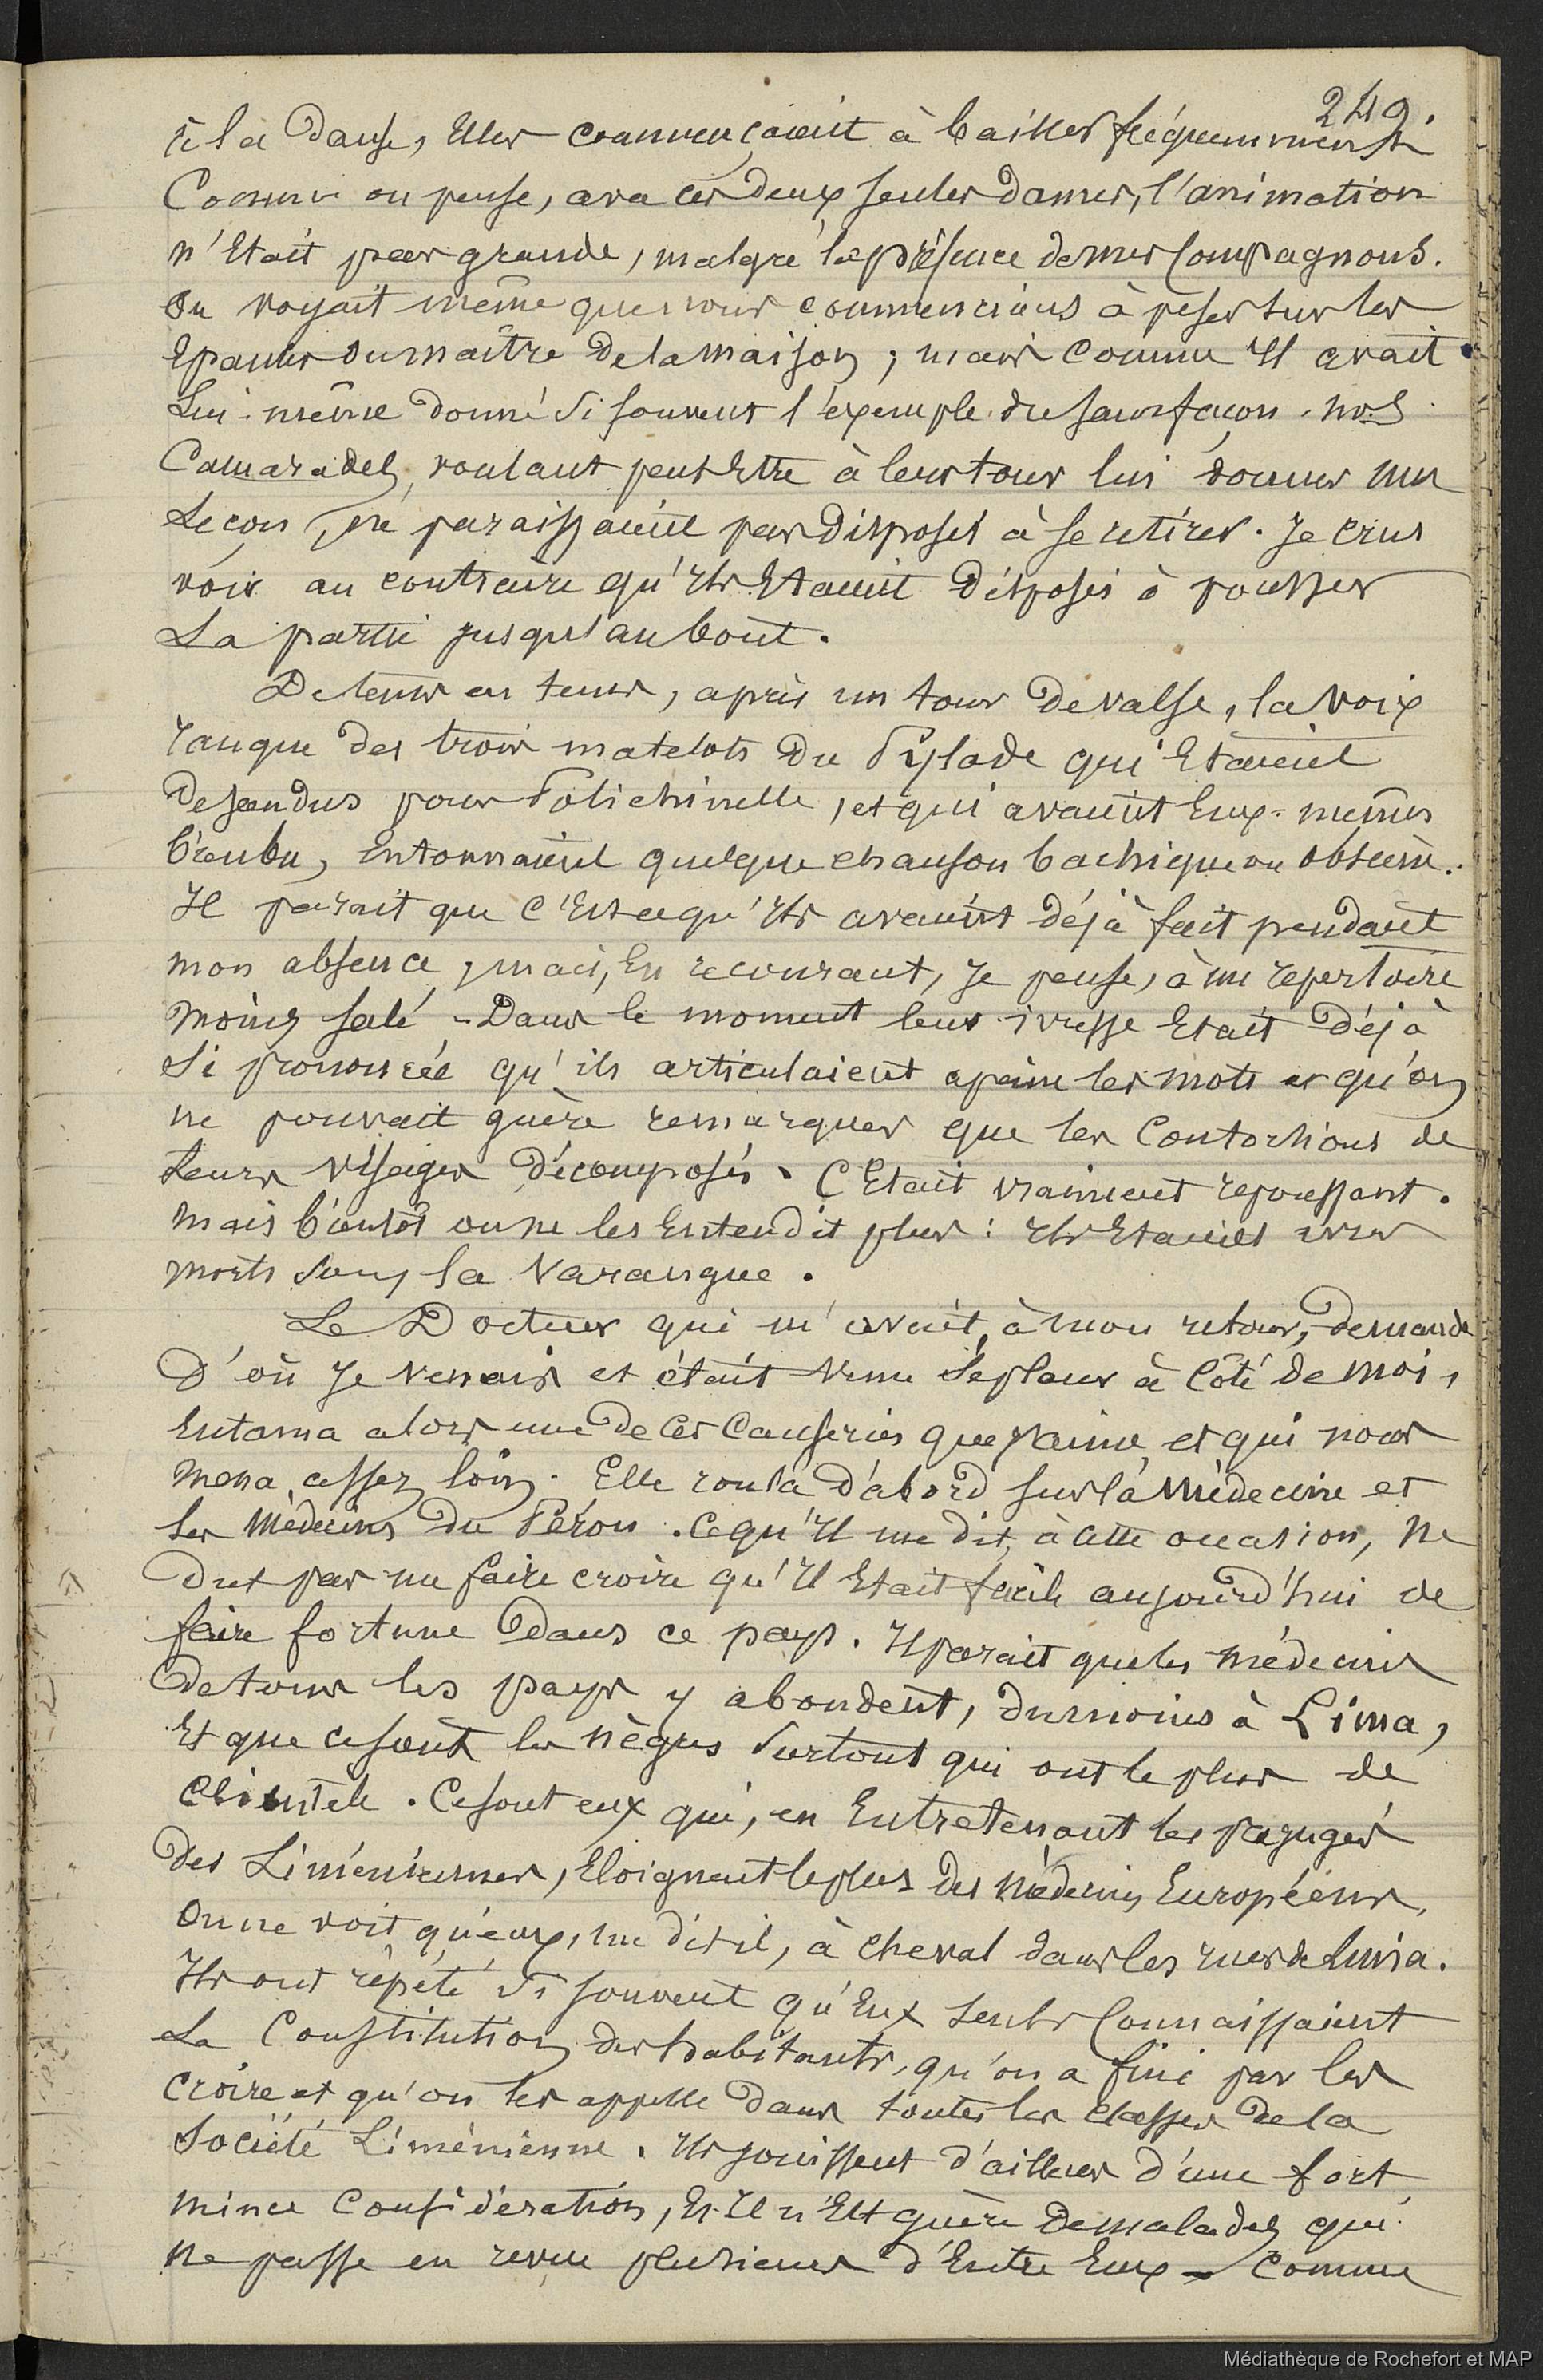 249.
à la danse, Elles commençaient à bailler fréquemment
Comme on pense, avec ces deux seules dames, l'animation
n'Etait pas grande, malgré la présence de mes Compagnons.
On voyait même que nous commencions à peser sur les
Epaules du maître de la maison, mais comme Il avait
Lui-même donné si souvent l'exemple du sans façon, nos
Camarades, voulant peut Etre à leur tour lui donner une
Leçon, ne paraissaient pas disposés à se retirer. Je crus
voir au contraire qu'Ils Etaient disposés à pousser
La partie jusqu'au bout.
De tems en tems, après un tour de valse, la voix
rauque des trois matelots du Pylade qui Etaient
descendus pour Polichinelle, et qui avaient Eux-mêmes
bien bu, Entonnaient quelque chanson bachique ou obscène.
Il parait que C'Est ce qu'Ils avaient déjà fait pendant
mon absence, mais, En recourant, Je pense, à un repertoire
moins salé - Dans le moment leur ivresse Etait déjà
si prononcée qu'ils articulaient a peine les mots et qu'on
ne pouvait guère remarquer que les Contortions de
Leurs visages décomposés. C'Etait vraiment repoussant.
Mais bientôt on ne les Entendit plus : Ils Etaient ivres
morts sous la Varangue.
Le Docteur qui m'avait, à mon retour, demandé
D'où Je venais et était venu se placer à Côté de moi,
Entama alors une de Ces Causeries que J'aime, et qui nous
mena assez loin. Elle roula d'abord sur la Médecine et
Les Médecins du Pérou. Ce qu'Il me dit, à cette occasion, ne
dut pas me faire croire qu'Il Etait facile aujourd'hui de
faire fortune dans ce pays. Il parait que les médecins
de tous les pays y abondent, du moins à Lima,
Et que ce sont les nègres surtout qui ont le plus de
Clientele. Ce sont eux qui, en Entretenant les préjugés
des Liméniennes, Eloignent le plus des médecins Européens.
On ne voit qu'eux, me dit il, à cheval dans les rues de Lima.
Ils ont répété si souvent qu'Eux seuls Connaissaient
La Constitution des habitants, qu'on a fini par les
croire et qu'on les appelle dans toutes les classes de la
Société Liménienne. Ils jouissent d'ailleurs d'une fort
mince Considération, Et Il n'Est guère de malades qui
ne passe en revue plusieurs d'Entre Eux - Comme
Médiathèque de Rochefort et MAP